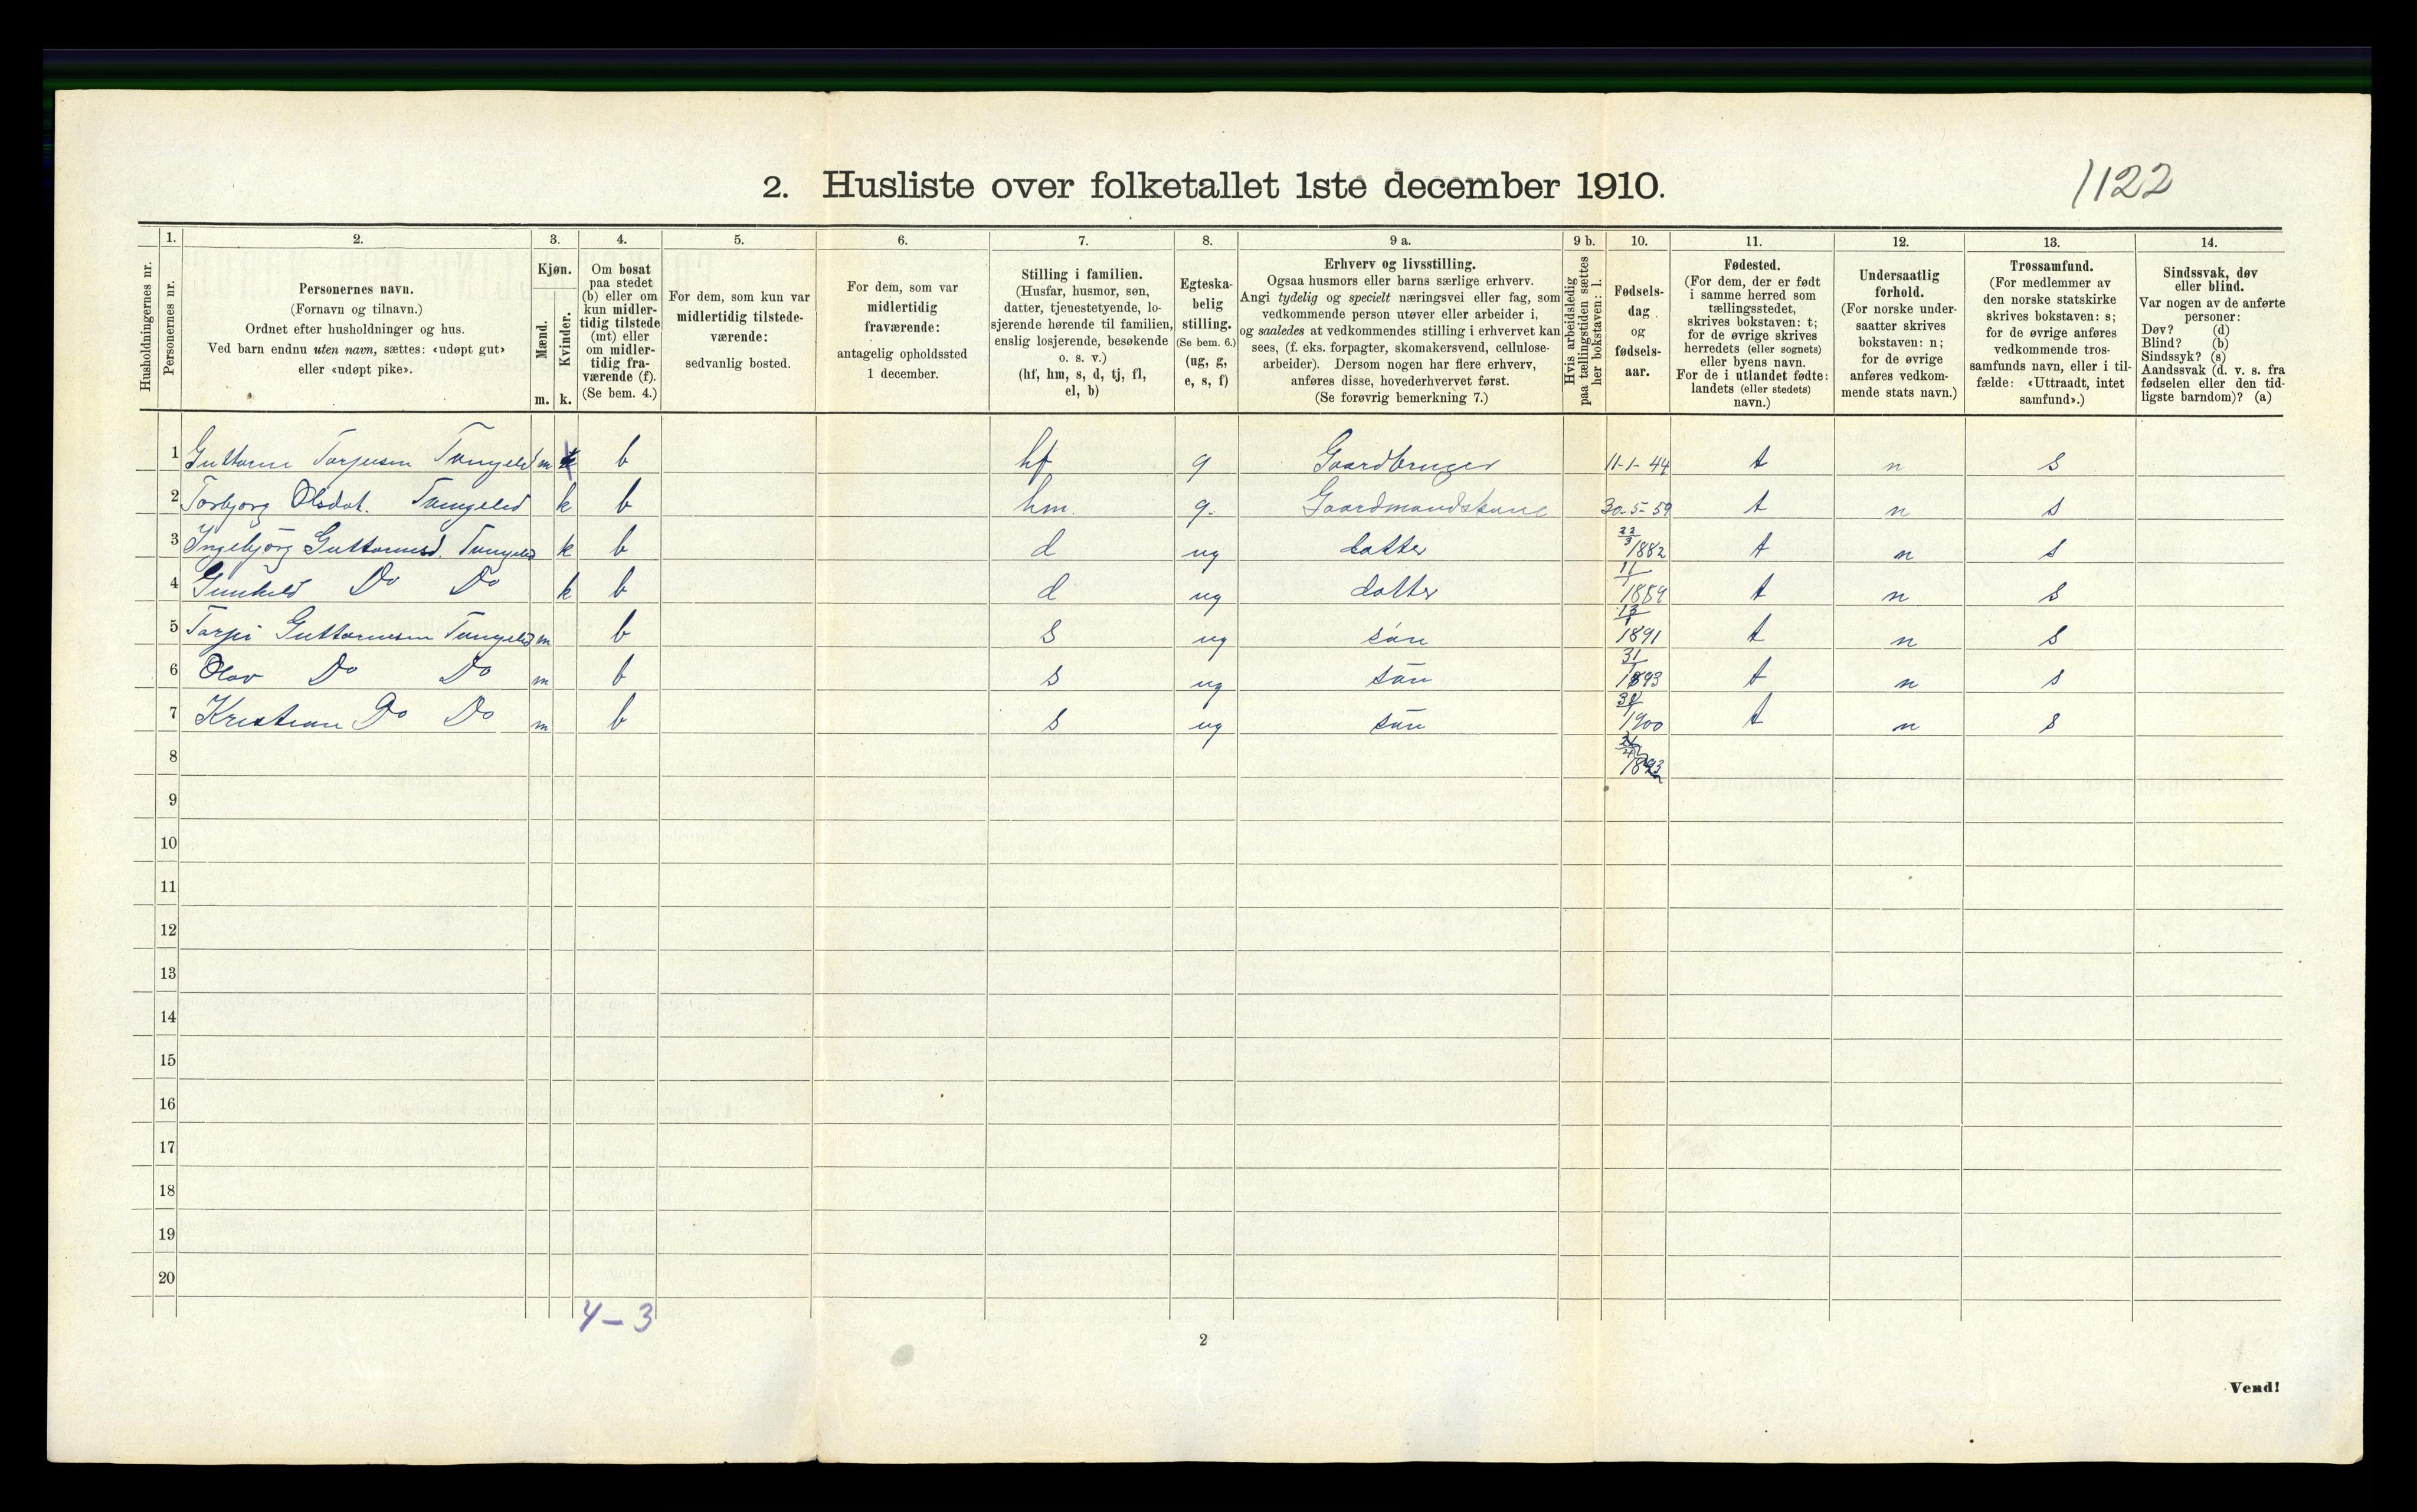 1122
2. Husliste over folketallet 1ste december 1910.
Husholdningernes nr.
1. Personernes nr.
2. Personernes navn.
(Fornavn og tilnavn.)
Ordnet efter husholdninger og hus.
Ved barn endnu uten navn, sættes: «udøpt gut»
eller «udøpt pike».
3. Kjøn.
Mænd. Kvinder.
m. k.
4. Om bosat
paa stedet
(b) eller om
kun midler-
tidig tilstede
(mt) eller
om midler-
tidig fra-
værende (f).
(Se bem. 4.)
5. For dem, som kun var
midlertidig tilstede-
værende:
sedvanlig bosted.
6. For dem, som var
midlertidig
fraværende:
antagelig opholdssted
1 december.
7. Stilling i familien.
(Husfar, husmor, søn,
datter, tjenestetyende, lo-
sjerende hørende til familien,
enslig losjerende, besøkende
o. s. v.)
(hf, hm, s, d, tj, fl,
el, b)
8. Egteska-
belig
stilling.
(Se bem. 6.)
(ug, g,
e, s, f)
9 a. Erhverv og livsstilling.
Ogsaa husmors eller barns særlige erhverv.
Angi tydelig og specielt næringsvei eller fag, som
vedkommende person utøver eller arbeider i,
og saaledes at vedkommendes stilling i erhvervet kan
sees, (f. eks. forpagter, skomakersvend, cellulose-
arbeider). Dersom nogen har flere erhverv,
anføres disse, hovederhvervet først.
(Se forøvrig bemerkning 7.)
9 b. Hvis arbeidsledig
paa tællingstiden sættes
her bokstaven: l.
10. Fødsels-
dag
og
fødsels-
aar.
11. Fødested.
(For dem, der er født
i samme herred som
tællingsstedet,
skrives bokstaven: t;
for de øvrige skrives
herredets (eller sognets)
eller byens navn.
For de i utlandet fødte:
landets (eller stedets)
navn.)
12. Undersaatlig
forhold.
(For norske under-
saatter skrives
bokstaven: n;
for de øvrige
anføres vedkom-
mende stats navn.)
13. Trossamfund.
(For medlemmer av
den norske statskirke
skrives bokstaven: s;
for de øvrige anføres
vedkommende tros-
samfunds navn, eller i til-
fælde: «Uttraadt, intet
samfund».)
14. Sindssvak, døv
eller blind.
Var nogen av de anførte
personer:
Døv? (d)
Blind? (b)
Sindssyk? (s)
Aandssvak (d. v. s. fra
fødselen eller den tid-
ligste barndom)? (a)
1 Guttorm Torjusen m b hf g Gaardbruger 11-1-44 t n s
2 Torbjorg Olsdat. k b hm. g. Gaardmandskone 30-5-59 t n s
3 Ingebjörg Guttormsd. k b d ug datter 22/3 1882 t n s
4 Gunhild Do Do k b d ug datter 1889 t n s
5 Guttormsen m b s ug sön 1891 t n s
6 Olav Do Do m b s ug sön 1893 t n s
7 Kristian Do Do m b s ug sön 1900 t n s
8
9
10
11
12
13
14
15
16
17
18
19
20
4-3
2
Vend!